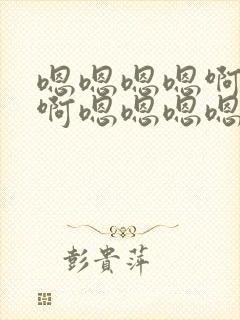 嗯嗯嗯嗯啊
啊嗯嗯嗯嗯
彭貴萍